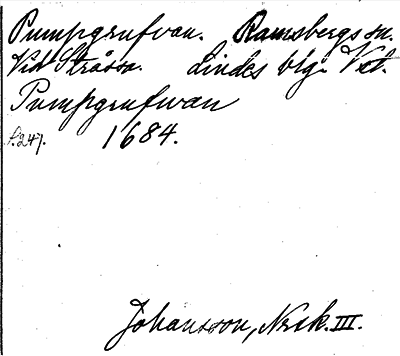 Pumpgrufvan. Ramsbergs sn.
Vid Stråssa. Lindes blg. Vstl.
Pumpgrufwan
s. 247. 1684.
Johansson, Norsk. III.